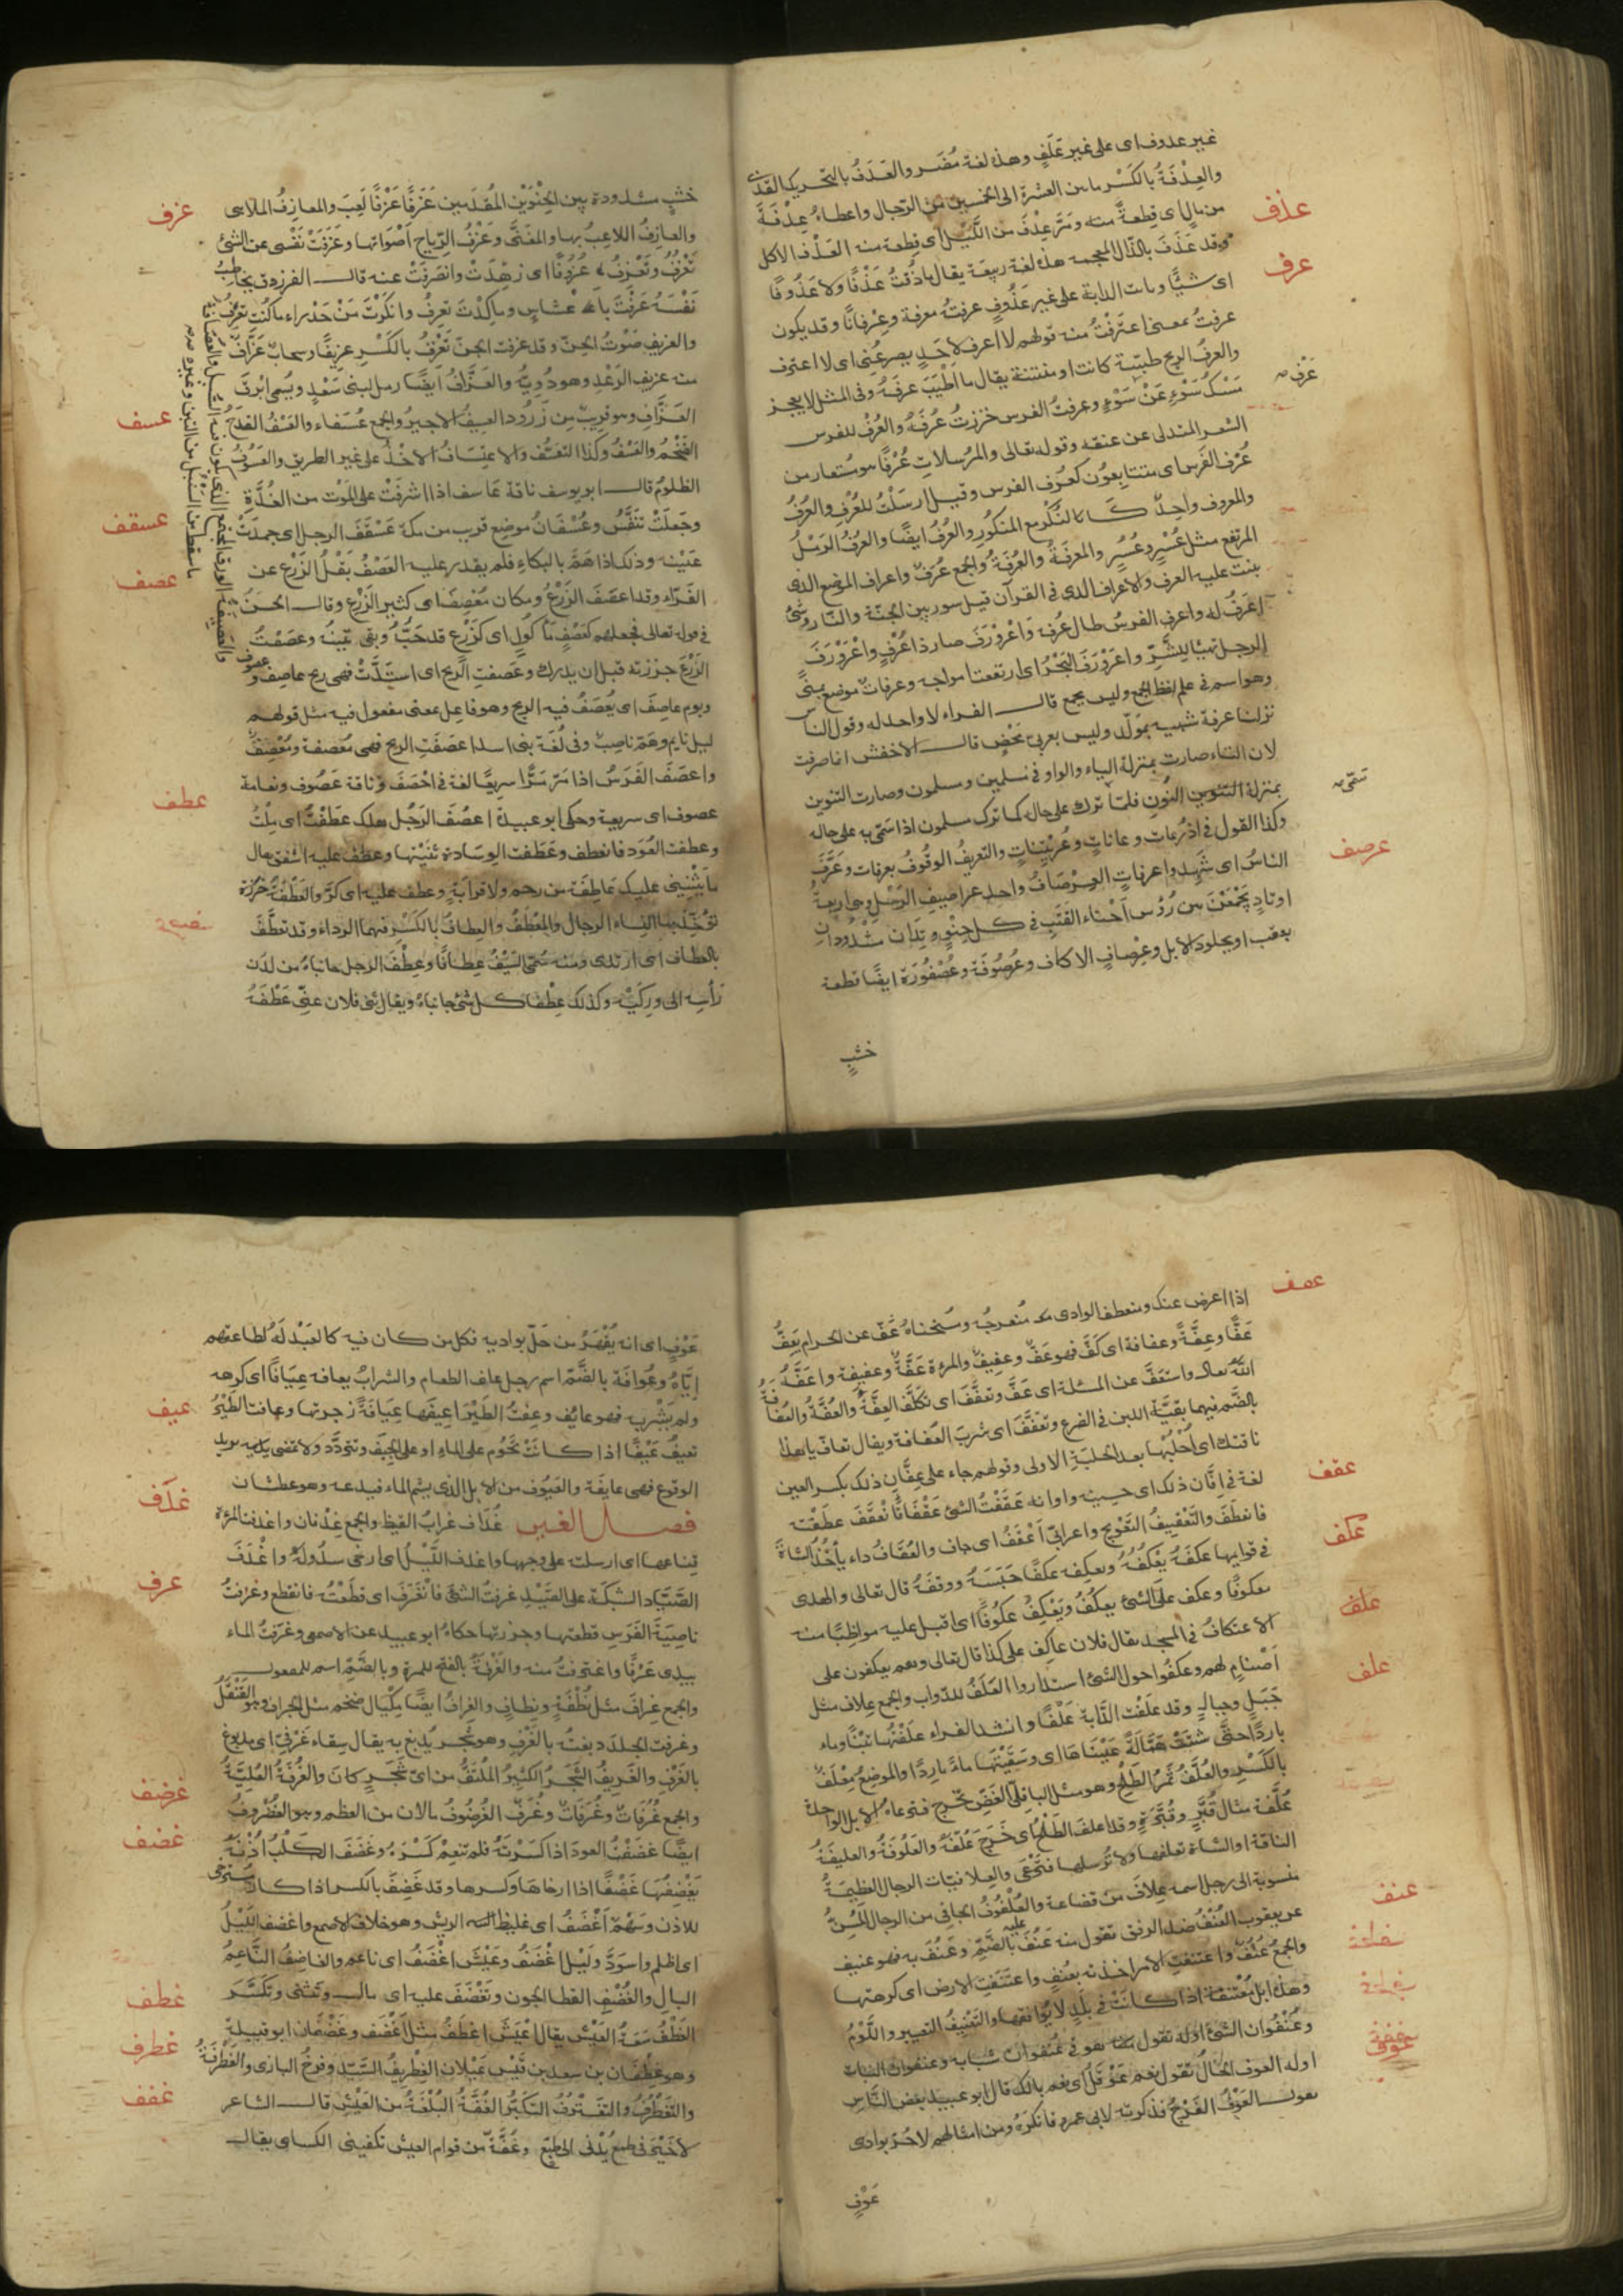 غير عدوف اى على غير علف وهذه لغة مضر والعدف بالتحريك القذى
والعدفة بالكسر ما بين العشرة الى الخمسين من الرجال واعطاه عدفة
من مال اى قطعة منه ومر عدف من الليل اى قطعة منه العذف الاكل
عذف
وقد عذف بالذال المعجمة هذه لغة ربيعة يقال ما ذقت عذفا ولا عذوفا
اى شيئا وباتت الدابة على غير عذوف عرفته معرفة وعرفانا وقد يكون
عرف
عرفت بمعنى اعترفت منه قولهم لا اعرف لاحد يصرعنى اى لا اعترف
والعرف الريح طيبة كانت او منتنة يقال ما اطيب عرفه وفى المثل لا يعجز
مسك سوء عن عرف سوء وعرفت الفرس جززت عرفه والعرف للفرس
الشعر المتدلى عن عنقه وقوله تعالى والمرسلات عرفا هو مستعار من
عرف الفرس اى متتابعون كعرف الفرس وقيل ارسلت للعرف والعرف
والمعروف واحد كالنكر مع المنكور والعرف ايضا والعرف الرمل
المرتفع مثل عسر وعسر والعرفة والجمع عرف واعراف الموضع الذى
ينبت عليه العرف والاعراف الذى فى القرآن قيل سور بين الجنة والنار وشئ
اعرف له واعرف الفرس طال عرفه واعرورف صار ذا عرف واعرورف
الرجل تهيأ للشر واعرورف البحر اى ارتفعت امواجه وعرفات موضع بمنى
وهو اسم فى علم لفظ الجمع وليس بجمع قال الفراء لا واحد له وقول الناس
نزلنا عرفة شبيه بمولد وليس بعربى محض قال الاخفش انما صرفت
لان التاء صارت بمنزلة الياء والواو فى مسلمين ومسلمون وصارت التنوين
بمنزلة النون فلما ترك على حاله كما ترك مسلمون اذا سمى به على حاله
وكذا القول فى اذرعات وعانات وعريتنات والتعريف الوقوف بعرفات وعرف
الناس اى شهدوا عرفات العرصاف واحد عراصيف الرحل وهى اربعة
عرصف
اوتاد يجمعن بين رؤس احناء القتب فى كل حنو وتدان مشدودان
بعقب او بجلود الابل وعرصاف الاكاف وعرصوفه وعصفوره ايضا قطعة
خشب
خشب مشدودة بين الحنوين المقدمين عزف عزفا لعب والمعازف الملاهى
عزف
والعازف اللاعب بها والمغنى وعزف الرياح اصواتها وعزفت نفسى عن الشئ
تعزف وتعزف عزوفا اى زهدت وانصرفت عنه قال الفرزدق يخاطب
نفسه عزفت باعشاش وما كدت تعزف وانكرت من حدراء ما كنت تعرف
والعزيف صوت الجن وقد عزفت الجن تعزف بالكسر عزيفا وسحاب عزاف
منه عزيف الرعد وهو دويه والعزاف ايضا رمل لبنى سعد ويسمى ابرق
العزاف وهو قريب من زرود العسيف الاجير والجمع عسفاء والعسف القدح
عسف
الضخم والعسف وكذا التعسف والاعتساف الاخذ على غير الطريق والعسوف
الظلوم قال ابو يوسف ناقة عاسف اذا اشرفت على الموت من الغدة
وجعلت تنفس وعسفان موضع قريب من مكة عسقف الرجل اى جمدت
عسقف
عينه وذلك اذا هم بالبكاء فلم يقدر عليه العصف بقل الزرع عن
عصف
الفراء وقد اعصف الزرع ومكان معصف اى كثير الزرع وقال الحسن
فى قوله تعالى فجعلهم كعصف مأكول اى كزرع قد اكل حبه وبقى تبنه وعصفت
الزرع جززته قبل ان يدرك وعصفت الريح اى اشتدت فهى ريح عاصف وعصوف
ويوم عاصف اى يعصف فيه الريح وهو فاعل بمعنى مفعول فيه مثل قولهم
ليل نايم وهم ناصب وفى لغة بنى اسد اعصفت الريح فهى معصفة ومعصف
واعصف الفرس اذا مر مرا سريعا لغة فى احصف وناقة عصوف ونعامة
عصوف اى سريعة وحكى ابو عبيدة اعصف الرجل هلك عطفت اى ملت
عطف
وعطفت العود فانعطف وعطفت الوسادة ثنيتها وعطف عليه اشفق يقال
ما يثنينى عليك عاطفة من رحم ولا قرابة وعطف عليه اى كر والعطفة خرزة
تؤخذ بها النساء الرجال والمعطف والعطاف بالكسر فيهما الرداء وقد تعطف
بالعطاف اى ارتدى ومنه سمى السيف عطافا وعطفا الرجل جانباه من لدن
رأسه الى وركيه وكذلك عطفا كل شئ جانباه ويقال ثنى فلان عنى عطفه
اذا اعرض عنك ومنعطف الوادى منعرجه ومنحناه عف عن الحرام يعف
عفف
عفا وعفة وعفافة اى كف فهو عف وعفيف والمرءة عفة وعفيفة واعفه
الله تعالى واستعف عن المسئلة اى عف وتعفف اى تكلف العفة والعفة والعفافة
بالضم فيهما بقية اللبن فى الضرع وتعفف اى شرب العفافة ويقال تعاف يا هذا
ناقتك اى احلبها بعد الحلبة الاولى وقولهم جاء على عفان ذلك بكسر العين
لغة فى افان ذلك اى حينه واوانه عقفت الشئ عقفا فانعقف عطفته
عقف
فانعطف والتعقيف التعويج واعرابى اعقف اى جاف والعقاف داء يأخذ الشاة
فى قوايمها عكفه يعكفه ويعكفه عكفا حبسه ووقفه قال تعالى والهدى
عكف
معكوفا وعكف على الشئ يعكف ويعكف عكوفا اى اقبل عليه مواظبا منه
الاعتكاف فى المسجد يقال فلان عاكف على كذا قال تعالى وهم يعكفون على
علف
اصنام لهم وعكفوا حول الشئ استداروا العلف للدواب والجمع علاف مثل
علف
جبل وجبال وقد علفت الدابة علفا وانشد الفراء علفتها تبنا وماء
باردا حتى شتت همالة عيناها اى وسقيتها ماء باردا والموضع معلف
بالكسر والعلف ثمر الطلح وهو مثل الباقلى الغض تخرج فترعاه الابل الواحدة
علفة مثال قبر وقبرة وقد اعلف الطلح اى خرج علفه والعلوفة والعليفة
الناقة او الشاة تعلفها ولا ترسلها فترعى والعلافيات الرحال العظيمة
منسوبة الى رجل اسمه علاف من قضاعة والعلفوف الجافى من الرجال المسن
عن يعقوب العنف ضد الرفق تقول منه عنف عليه بالضم وعنف به فهو عنيف
عنف
والجمع عنف واعتنفت الامر اخذته بعنف واعتنفت الارض اى كرهتها
وهذه ابل معتنفة اذا كانت فى بلد لا يوافقها والتعنيف التعيير واللوم
وعنفوان الشئ اوله تقول هو فى عنفوان شبابه وعنفوان النبات
اوله العوف الحال تقول نعم عوفك اى نعم بالك قال ابو عبيد بعض الناس
يقول العوف الفرج فذكرته لابى عمرو فانكره ومن امثالهم لا حر بوادى
عوف
عوف اى انه يقهر من حل بواديه فكل من كان فيه كالعبد له لطاعتهم
اياه وعوافة بالضم اسم رجل عاف الطعام والشراب يعافه عيافا اى كرهه
عيف
ولم يشربه فهو عائف وعفت الطير اعيفها عيافة زجرتها وعافت الطير
تعيف عيفا اذا كانت تحوم على الماء او على الجيف وتتردد ولا تمضى يريد
الوقوع فهى عايفة والعيوف من الابل الذى يشم الماء فيدعه وهو عطشان
فصل الغين غداف غراب القيظ والجمع غدفان واغدفت المرءة
غدف
قناعها اى ارسلته على وجهها واغدف الليل اى ارخى سدوله واغدف
الصياد الشبكة على الصيد غرفت الشئ فانغرف اى قطعته فانقطع وغرفت
غرف
ناصية الفرس قطعتها وجززتها حكاه ابو عبيد عن الاصمعى وغرفت الماء
بيدى غرفا واغترفت منه والغرفة بالفتح للمرة وبالضم اسم للمفعول
والجمع غراف مثل نطفة ونطاف والغراف ايضا مكيال ضخم مثل الجراف وهو القنقل
وغرفت الجلد دبغته بالغرف وهو شجر يدبغ به يقال سقاء غرفى اى مدبوغ
بالغرف والغريف الشجر الكثير الملتف من اى شجر كان والغرفة العلية
والجمع غرفات وغرفات وغرف الغرضوف ما لان من العظم وهو الغضروف
غرضف
ايضا غضفت العود اذا كسرته فلم تنعم كسره وغضف الكلب اذنه
غضف
يغضفها غضفا اذا ارخاها وكسرها وقد غضف بالكسر اذا كان مسترخى
للاذن وسهم اغضف اى غليظ الريش وهو خلاف الاصمع واغضف الليل
اى اظلم واسود وليل اغضف وعيش اغضف اى ناعم والغاضف الناعم
البال والغضف القطا الجون وتغضف عليه اى مال وتثنى وتكسر
الغطف سعة العيش يقال عيش اغطف مثل اغضف وغطفان ابو قبيلة
غطف
وهو غطفان بن سعد بن قيس عيلان الغطريف السيد وفرخ البازى والغطرفة
غطرف
والتغطرف والتغترف التكبر الغفة البلغة من العيش قال الشاعر
غفف
لا خير فى طمع يدنى الى طبع وغفة من قوام العيش تكفينى الكساى يقال